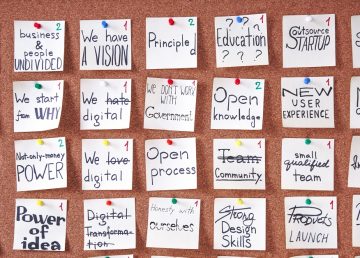 2
business
& people
UNDIVIDED
1
We have
A VISION
2
Principled
1
? ? ?
Education
? ? ?
1
Outsource
STARTUP
2
We start
from WHY
1
We hate
digital
2
We DON'T WORK
WITH
Government
2
Open
knowledge
1
NEW
USER
EXPERIENCE
2
Not-only-money
POWER
1
We love
digital
1
Open
process
1
Team
Community
1
small
qualified
team
1
Power of
idea
1
Digital
Transforma-
tion
1
Honesty with
ourselves
1
Strong
Design
Skills
1
Products
LAUNCH